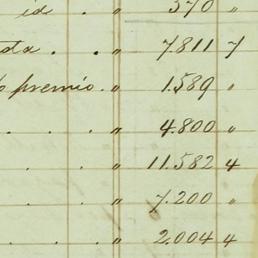 id . " 370 "
. . " 7.811 7
premio . " 1.589 "
. . " 4.800 "
. . " 11.582 4
. . " 7.200 "
. . " 2.004 4